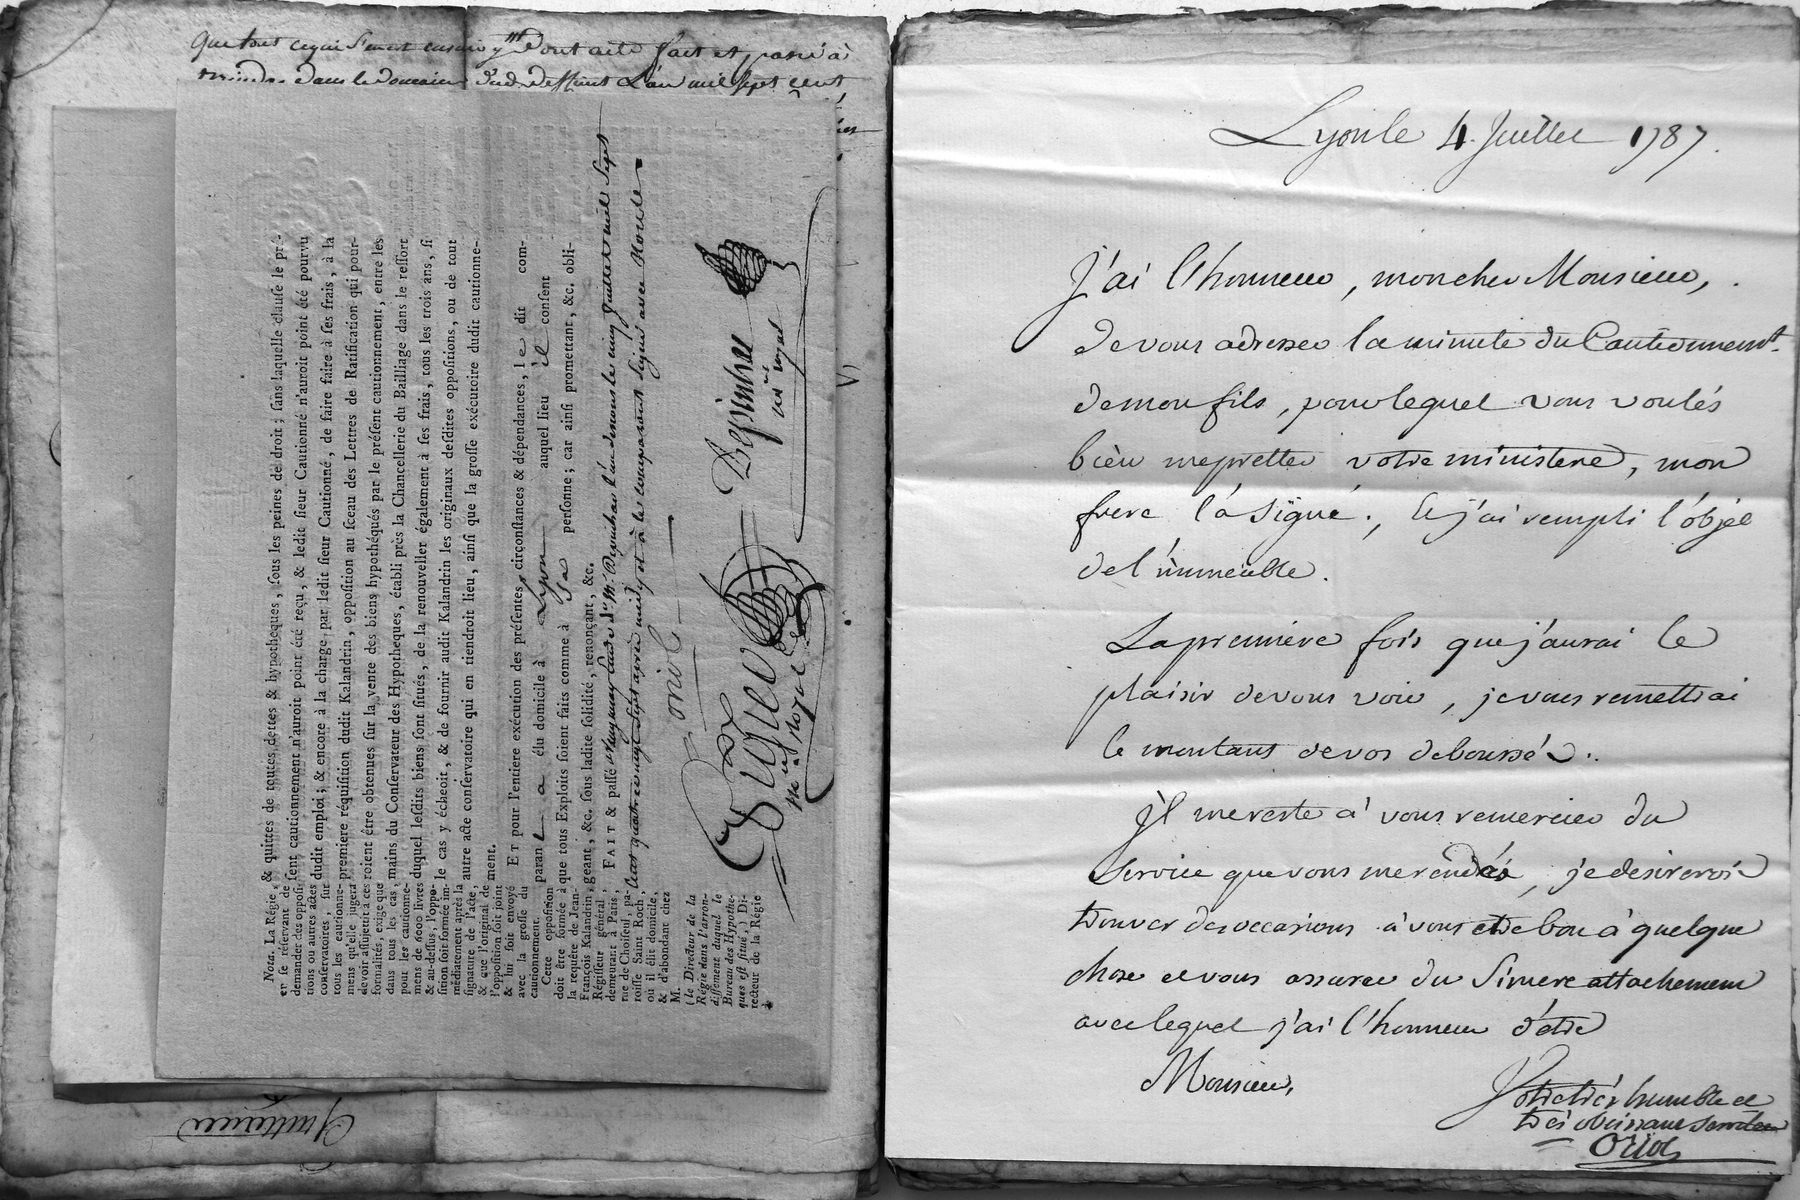 Que tout ce qui s'en est ensuivi Dont acte fait et passé à
dans le domaine dud. deffunt L'an mil sept cent
& quittes de toutes dettes & hypotheques, ſous les peines de droit; ſans laquelle clauſe le pré-
ſent cautionnement n'auroit point été reçu, & ledit ſieur Cautionné n'auroit point été pourvu
dudit emploi; & encore à la charge, par ledit ſieur Cautionné, de faire faire à ſes frais, à la
premiere réquiſition dudit Kalandrin, oppoſition au ſceau des Lettres de Ratification qui pour-
roient être obtenues ſur la vente des biens hypothéqués par le préſent cautionnement, entre les
mains du Conſervateur des Hypotheques, établi près la Chancellerie du Bailliage dans le reſſort
duquel leſdits biens ſont ſitués, de la renouveller également à ſes frais, tous les trois ans, ſi
le cas y écheoit, & de fournir audit Kalandrin les originaux deſdites oppoſitions, ou de tout
autre acte conſervatoire qui en tiendroit lieu, ainſi que la groſſe exécutoire dudit cautionne-
ment.
ET pour l'entiere exécution des préſentes, circonſtances & dépendances, le dit com-
parant a élu domicile à Lyon auquel lieu il conſent
que tous Exploits ſoient faits comme à sa perſonne; car ainſi promettant, &c. obli-
geant, &c. ſous ladite ſolidité, renonçant, &c.
FAIT & paſſé juillet mil sept
cent quatre vingt sept après midy et à le comparant signé avec Nous
Nota. La Régie,
en ſe réſervant de
demander des oppoſi-
tions ou autres actes
conſervatoires, ſur
tous les cautionne-
mens qu'elle jugera
devoir aſſujettir à ces
formalités, exige que
dans tous les cas,
pour les cautionne-
mens de 6000 livres
& au-deſſus, l'oppo-
ſition ſoit formée im-
médiatement après la
ſignature de l'acte,
& que l'original de
l'oppoſition ſoit joint
& lui ſoit envoyé
avec la groſſe du
cautionnement.
Cette oppoſition
doit être formée à
la requête de Jean-
François Kalandrin,
Régiſſeur général,
demeurant à Paris,
rue de Choiſeul, pa-
roiſſe Saint Roch,
où il élit domicile,
& d'abondant chez
M.
(le Directeur de la
Régie dans l'arron-
diſſement duquel le
Bureau des Hypothe-
ques eſt ſitué,) Di-
recteur de la Régie
Quittance
Lyon le 4. Juillet 1787.
J'ai l'honneur, mon cher Monsieur,
de vous adresser la minute du Cautionnemt.
de mon fils, pour lequel vous voulés
bien me pretter votre ministere, mon
frere l'a signé; et j'ai rempli l'objet
de l'immeuble.
La premiere fois que j'aurai le
plaisir de vous voir, je vous remettrai
le montant de vos deboursés.
Il me reste a vous remercier du
service que vous me rendés, je desirerois
trouver des occasions à vous etre bon à quelque
chose et vous assurer du sincere attachement
avec lequel j'ai l'honneur d'etre
Monsieur,
Votre très humble et
très obeissant serviteur